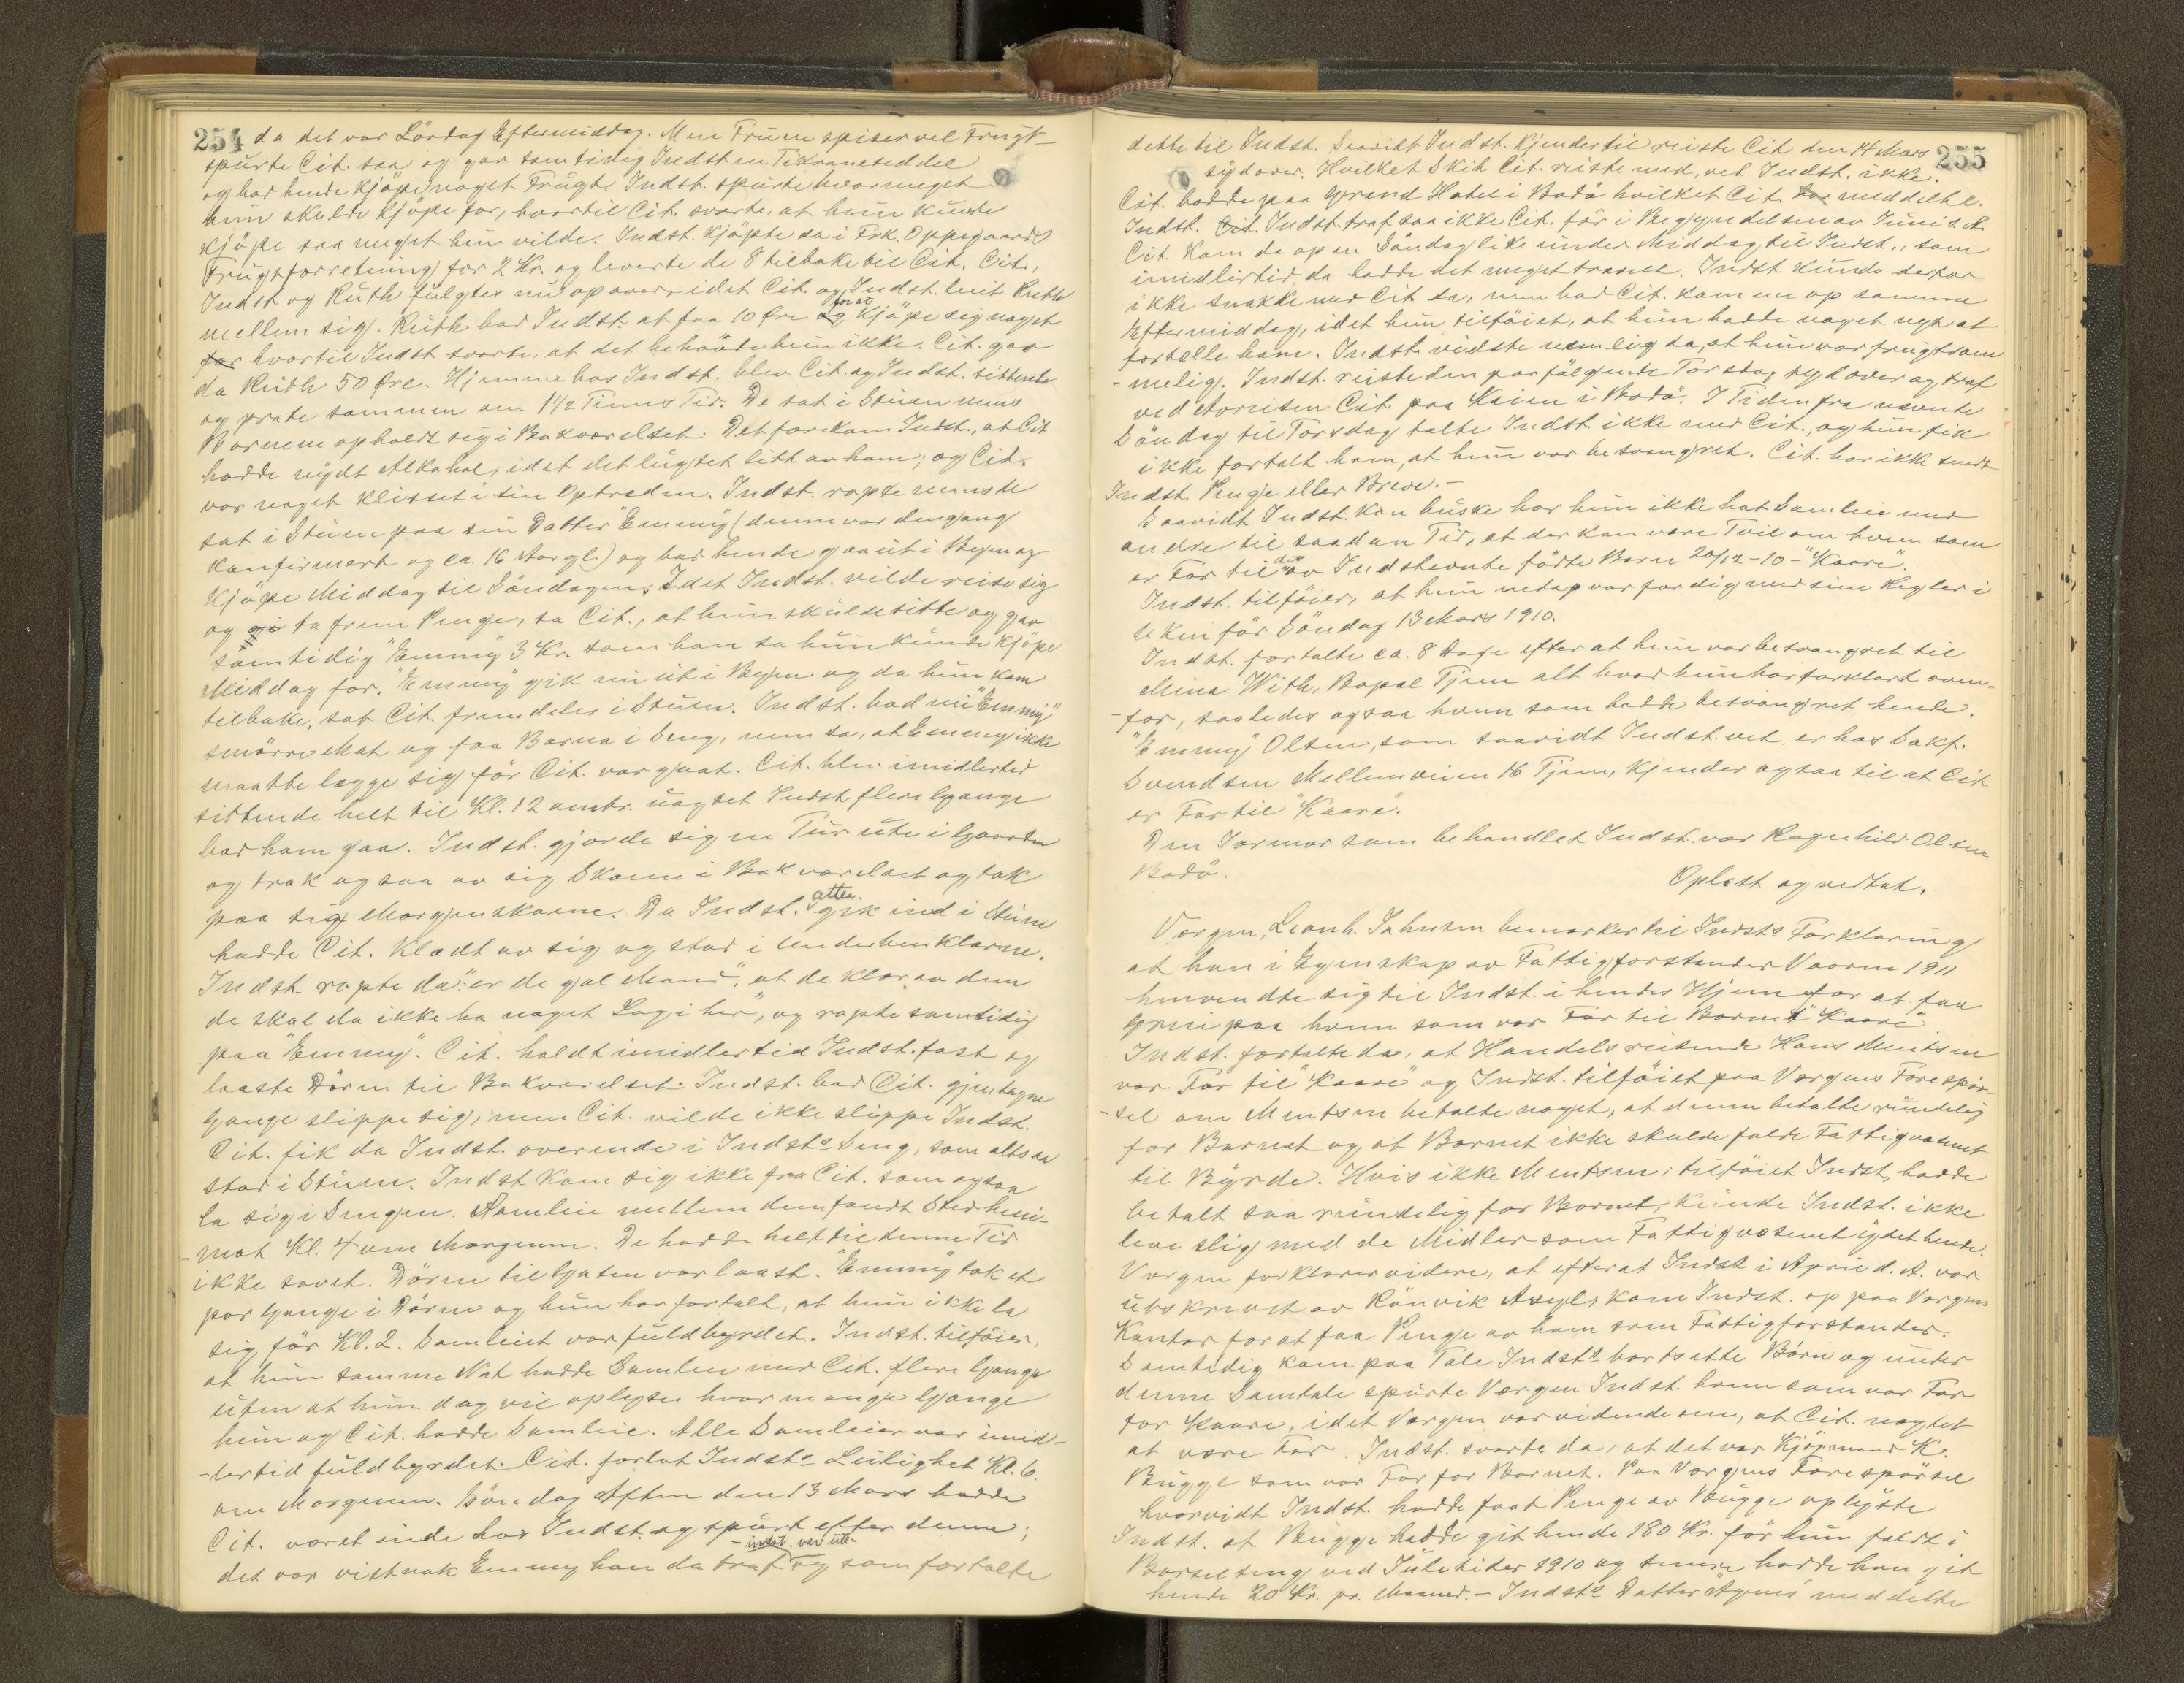 254 da det var Lördag Eftermiddag. Men Fruen spiser vel Frugt
spurte Cit. saa og gav samtidig Indst. en Tikroneseddel
og bad hende kjöpe noget Frugt. Indst. spurte hvormeget
hun skulde kjöpe for, hvortil Cit. svarte, at hun kunde
kjöpe saa meget hun vilde. Indst. kjöpte da i Frk. Oppegaards
Frugtforretning for 2 Kr. og leverte de 8 tilbake til Cit. Cit.,
Indst og Ruth fulgtes nu opover, idet Cit. og Indst. leiet Ruth
mellem sig. Ruth bad Indst. at faa 10 Öre og for at kjöpe seg noget
for hvortil Indst svarte, at det behövde hun ikke. Cit. gav
da Ruth 50 Öre. Hjemme hos Indst. blev Cit. og Indst. sittende
og prate sammen om 1 1/2 Times Tid. De sat i Stuen mens
Barnene opholdt sig i Bakværelset. Det forekom Indst., at Cit
hadde nydt Alkohol, idet det lugtet litt av ham; og Cit.
var noget klisset i sin Optræden. Indst. ropte mens de
sat i Stuen paa sin Datter "Emmy" (denne var dengang
konfirmert og ca. 16 Aar gl.) og bad hende gaa ut i Byen og
kjöpe Middag til Söndagen. Idet Indst. vilde reise sig
og gi ta frem Penge, sa Cit., at hun skulde sitte og gav
samtidig "Emmy" 3 Kr. som han sa hun kunde kjöpe
Middag for. "Emmy" gik nu ut i Byen og da hun kom
tilbake, sat Cit. fremdeles i Stuen. Indst. bad nu "Emmy"
smörre Mat og faa Barna i Seng, men sa, at Emmy ikke
maatte lægge sig för Cit. var gaat. Cit. blev imidlertid
sittende helt til Kl. 12 omtr. uagtet Indst flere Gange
bad ham gaa. Indst. gjorde sig en Tur ute i Gaarden
og trak ogsaa av sig Skoene i Bakværelset og tok
paa sig Morgenskoene. Da Indst. atter gik ind i Stuen
hadde Cit. klædt av sig og stod i Underbenklærne.
Indst. ropte da: "er de gal Mand", at de klær av dem
de skal da ikke ha noget Logi her", og ropte samtidig
paa "Emmy". Cit. holdt imidlertid Indst. fast og
laaste Dören til Bakværelset. Indst. bad Cit. gjentagne
Gange slippe sig, men Cit. vilde ikke slippe Indst.
Cit. fik da Indst. overende i Indsts Seng, som altsaa
stod i Stuen. Indst kom sig ikke fra Cit. som ogsaa
la sig i Sengen. Samleie mellem dem fandt Sted hen i-
-mot Kl. 4 om Morgenen. De hadde helt til denne Tid
ikke sovet. Dören til Gaten var laast. "Emmy" tok et
par Gange i Dören og hun har fortalt, at hun ikke la
sig för Kl. 2. Samleiet var fuldbyrdet. Indst. tilföier,
at hun samme Nat hadde Samleie med Cit. flere Gange
uten at hun dog vil oplyse hvor mange Gange
hun og Cit. hadde Samleie. Alle Samleier var imid-
-lertid fuldbyrdet. Cit. forlot Indsts Leilighet Kl. 6.
om Morgenen. Söndag Aften den 13 Mars hadde
Cit. været inde hos Indst. og spurt efter denne;
det var vistnok Emmy han da traf - indst. var ute - og som fortalte
dette til Indst. Saavidt Indst. kjender til reiste Cit den 14 Mars 255
sydover. Hvilket Skib Cit. reiste med, vet Indst. ikke.
Cit. bodde paa Grand Hotel i Bodö hvilket Cit. har meddelt
Indst. Cit. Indst. traf saa ikke Cit. för i Begyndelsen av Juni s. A.
Cit. kom da op en Söndag like under Middag til Indst., som
imidlertid da hadde det meget travelt. Indst kunde derfor
ikke snakke med Cit da, men bad Cit. komme op samme
Eftermiddag, idet hun tilföiet, at hun hadde noget nyt at
fortælle ham. Indst. vidste nemlig da, at hun var frugtsom
-melig. Indst. reiste den paafölgende Torsdag sydover og traf
ved Avreisen Cit. paa Kaien i Bodö. I Tiden fra nævnte
Söndag til Torsdag talte Indst. ikke med Cit., og hun fik
ikke fortalt ham, at hun var besvangret. Cit. har ikke sendt
Indst. Penge eller Breve. -
Saavidt Indst. kan huske har hun ikke hat Samleie med
andre til saadan Tid, at der kan være Tvil om hvem som
er Far til det av Indstevnte födte Barn 20/12-10 - "Kaare".
Indst. tilföier, at hun netop var færdig med sine Regler i
Uken för Söndag 13 Mars 1910.
Indst. fortalte ca. 8 Dage efter at hun var besvangret til
Mina With, Bopæl Tjem alt hvad hun har forklart oven-
-for, saaledes ogsaa hvem som hadde besvangret hende.
"Emmy" Olsen, som saavidt Indst. vet er hos Sakf.
Svendsen Mellemveien 16 Tjem, kjender ogsaa til at Cit.
er Far til "Kaare".
Den Jormor som behandlet Indst. var Ragnhild Olsen
Bodö.
Oplæst og vedtat.
Vergen, Leonh. Johnsen bemærker til Indsts Forklaring
at han i Egenskap av Fattigforstander Vaaren 1911
henvendte sig til Indst. i hendes Hjem for at faa
Grei paa hvem som var Far til Barnet "Kaare"
Indst. fortalte da, at Handelsreisende Hans Mentsen
var Far til "Kaare" og Indst. tilföiet paa Vergens Forespör-
-sel om Mentsen betalte noget, at denne betalte rundelig
for Barnet og at Barnet ikke skulde falde Fattigvæsenet
til Byrde. Hvis ikke Mentsen, tilföiet Indst, hadde
betalt saa rundelig for Barnet, kunde Indst. ikke
leve slig med de Midler som Fattigvæsenet ydet hende.
Vergen forklarer videre, at efterat Indst i April d. A. var
utskrevet av Rönvik Asyl, kom Indst. op paa Vergens
Kontor for at faa Penge av ham som Fattigforstander.
Samtidig kom paa Tale Indsts bortsatte Börn og under
denne Samtale spurte Vergen Indst. hvem som var Far
for Kaare, idet Vergen var vidende om, at Cit. nægtet
at være Far. Indst. svarte da, at det var Kjöpmand K.
Bugge som var Far for Barnet. Paa Vergens Forespörsel
hvorvidt Indst. hadde faat Penge av Bugge oplyste
Indst. at Bugge hadde git hende 180 Kr. för hun faldt i
Barselseng ved Juletider 1910 og senere hadde han git
hende 20 Kr. pr. Maaned. - Indsts Datter "Agnes" meddelte